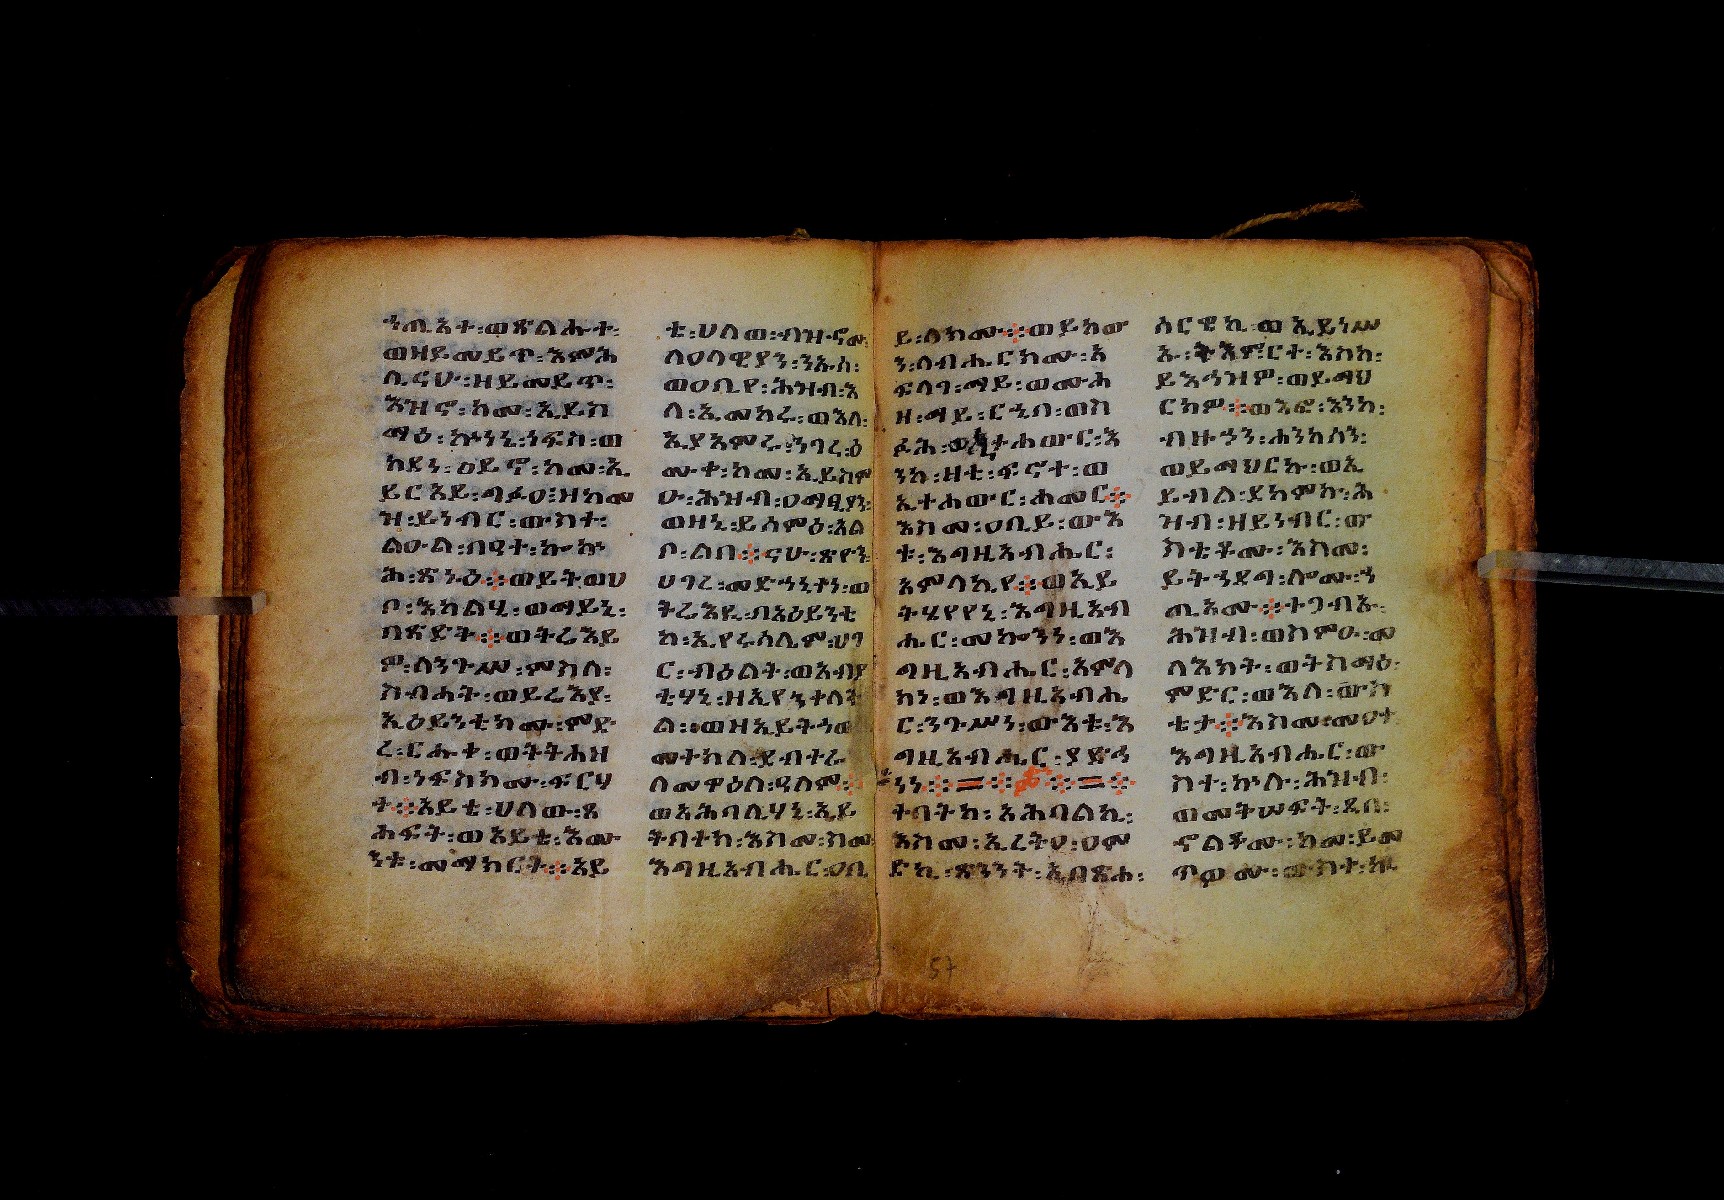 ኃጢአተ፡ወጽልሑተ፡
ወዘይመይጥ፡እምሕ
ሊናሁ፡ዘይመይጥ፡
እዝኖ፡ከመ፡ኢይስ
ማዕ፡ኵነኔ፡ነፍስ፡ወ
ከደነ፡ዐይኖ፡ከመ፡ኢ
ይርአይ፡ገፊዐ፡ዘከመ
ዝ፡ይነብር፡ውስተ፡
ልዑል፡በዓተ፡ኰኵ
ሕ፡ጽኑዕ፨ወይትወሀ
ቦ፡እክልሂ፡ወማይኒ፡
በጽድቅ፨ወትሬእይ
ዎ፡ለንጉሥ፡ምስለ፡
ስብሐት፡ወይሬእያ፡
አዕይንቲክሙ፡ምድ
ረ፡ርሑቀ፡ወትትሐዘ
ብ፡ነፍስክሙ፡ፍርሃ
ተ፨አይቴ፡ሀለው፡ጸ
ሐፍት፡ወአይቴ፡እሙ
ንቱ፡መማክርት፨አይ
ቴ፡ሀለወ፡ብዝኖሙ
ለዐላዊያን፡ንኡስ፡
ወዐቢየ፡ሕዝብ፡እ
ለ፡ኢመከሩ፡ወእለ፡
ኢያአምሩ፡ነገረ፡ዕ
ሙቀ፡ከመ፡ኢይስም
ዑ፡ሕዝብ፡ዐማፂያን፡
ወዘኒ፡ይሰምዕ፡አል
ቦ፡ልበ፨ናሁ፡ጽዮን፡
ሀገረ፡መድኀኒትነ፡ወ
ትሬእዪ፡በአዕይንቲ
ኪ፡ኢየሩሳሌም፡ሀገ
ር፡ብዕልት፡ወአብያ
ቲሃኒ፡ዘኢየንቀለቅ
ል፡ወዘኢይትኀወ
መትከለ፡ደብተራ
ለመዋዕለ፡ዓለም፨
ወአሕባሊሃኒ፡ኢይ
ትባተክ፡እስመ፡ስሙ፡
እግዚአብሔር፡ዐቢ
ይ፡ለክሙ፨ወይከው
ን፡ለብሔርክሙ፡አ
ፍላገ፡ማይ፡ወሙሐ
ዘ፡ማይ፡ርኂበ፡ወስ
ፉሕ፡ወኢተሐውር፡እ
ንከ፡ዘቲ፡ፍኖተ፡ወ
ኢተሐውር፡ሐመር፨
እስመ፡ዐቢይ፡ውእ
ቱ፡እግዚአብሔር፡
አምላኪየ፨ወኢይ
ትሄየየኒ፡እግዚአብ
ሔር፡መኰንን፡ወእ
ግዚአብሔር፡አምላ
ክነ፡ወእግዚአብሔ
ር፡ንጉሥነ፡ውእቱ፡እ
ግዚአብሔር፡ያድኅ
ነነ፨=፨፨=፨
ተባትከ፡አሕባልኪ፡
እስመ፡ኢረትዐ፡ዐም
ድኪ፡ጽንንት፡ኢበጽሐ፡
ሰርዌኪ፡ወኢይነሥ
እ፡ትእምርተ፡እስከ፡
ይእኅዝዎ፡ወይማህ
ርክዎ፨ወእሮ፡እንከ፡
ብዙኃን፡ሐንካሳን፡
ወይማህርኩ፡ወኢ
ይብል፡ደክምኩ፡ሕ
ዝብ፡ዘይነብር፡ው
ስቴቶሙ፡እስመ፡
ይትኀደግ፡ሎሙ፡ኀ
ጢአሙ፨ተጋብኡ፡
ሕዝብ፡ወስምዑ፡መ
ላእክት፡ወትስማዕ፡
ምድር፡ወእለ፡ውስ
ቴታ፨እስመ፡መዐተ
እግዚአብሔር፡ው
ስተ፡ኵሉ፡ሕዝብ፡
ወመትሠፍት፡ዲበ፡
ኖልቆሙ፡ከመ፡ይመ
ጥዎሙ፡ውስተ፡
57